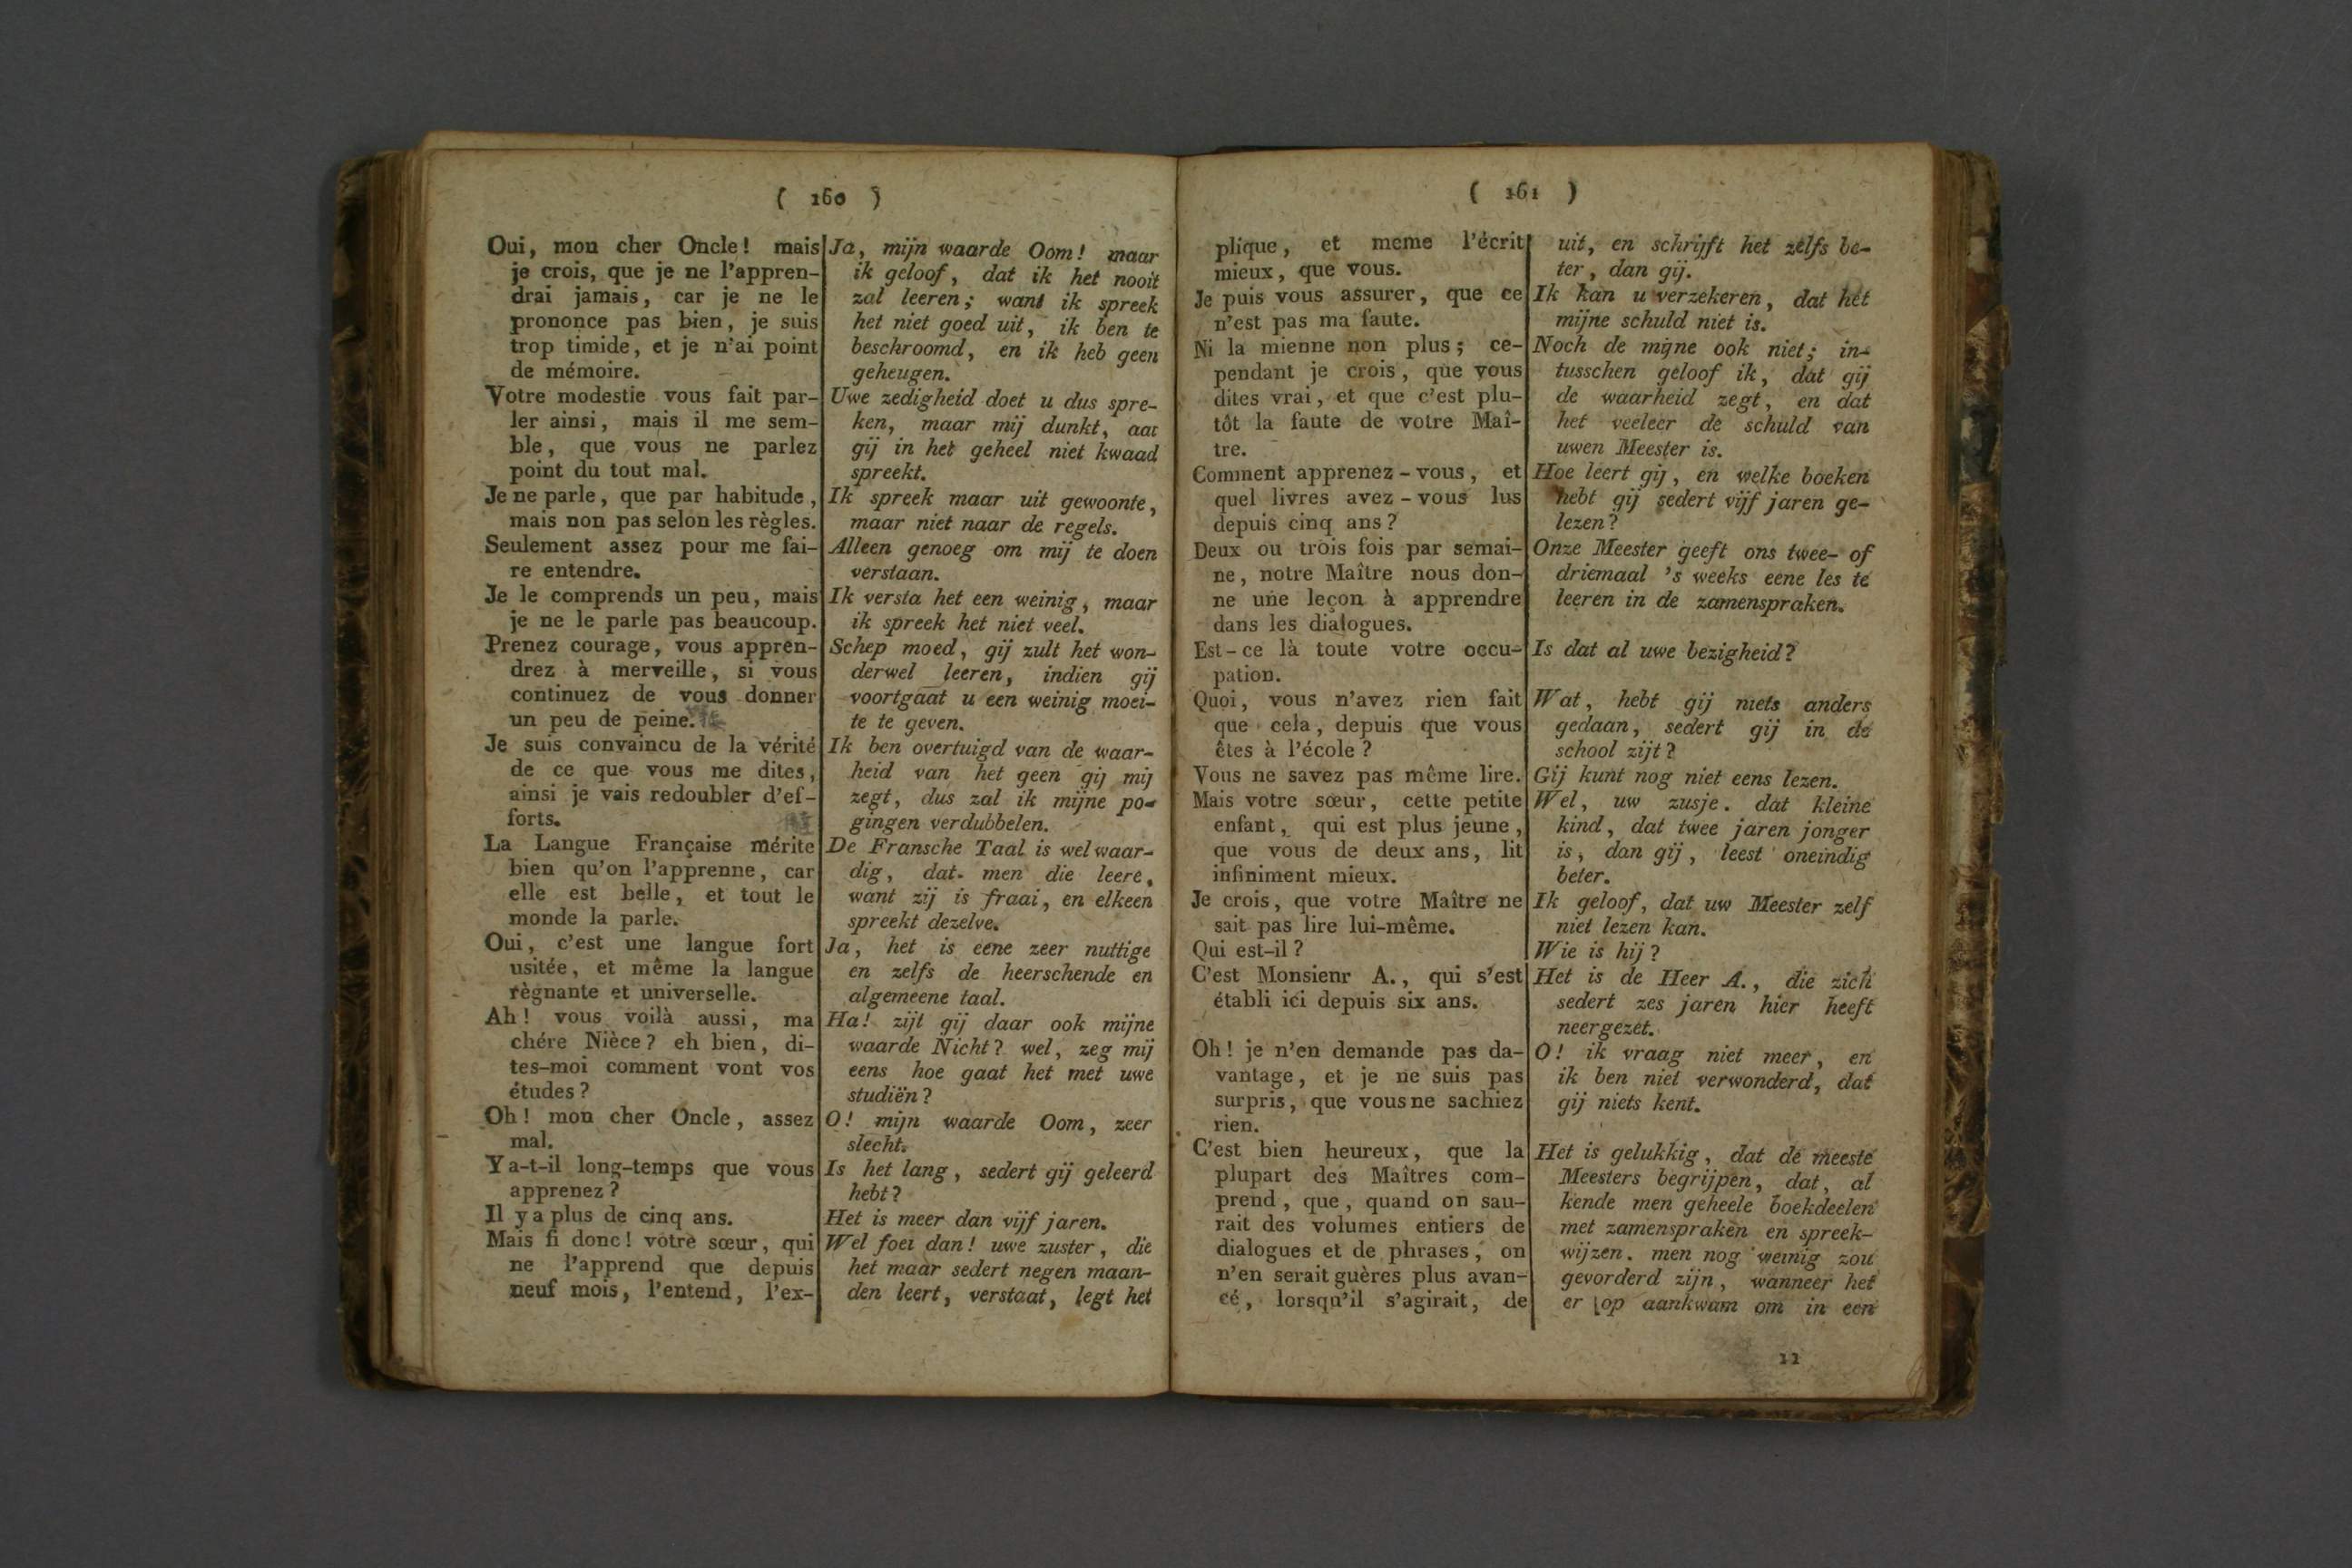 ( 160 )
Oui, mon cher Oncle! mais
je crois, que je ne l'appren-
drai jamais, car je ne le
prononce pas bien, je suis
trop timide, et je n'ai point
de mémoire.
Votre modestie vous fait par-
ler ainsi, mais il me sem-
ble, que vous ne parlez
point du tout mal.
Je ne parle, que par habitude,
mais non pas selon les règles.
Seulement assez pour me fai-
re entendre.
Je le comprends un peu, mais
je ne le parle pas beaucoup.
Prenez courage, vous appren-
drez à merveille, si vous
continuez de vous donner
un peu de peine.
Je suis convaincu de la vérité
de ce que vous me dites,
ainsi je vais redoubler d'ef-
forts.
La Langue Française mérite
bien qu'on l'apprenne, car
elle est belle, et tout le
monde la parle.
Oui, c'est une langue fort
usitée, et même la langue
règnante et universelle.
Ah! vous voilà aussi, ma
chére Nièce? eh bien, di-
tes-moi comment vont vos
études?
Oh! mon cher Oncle, assez
mal.
Y a-t-il long-temps que vous
apprenez?
Il y a plus de cinq ans.
Mais fi donc! votre sœur, qui
ne l'apprend que depuis
neuf mois, l'entend, l'ex-
Ja, mijn waarde Oom! maar
ik geloof, dat ik het nooit
zal leeren; want ik spreek
het niet goed uit, ik ben te
beschroomd, en ik heb geen
geheugen.
Uwe zedigheid doet u dus spre-
ken, maar mij dunkt, dat
gij in het geheel niet kwaad
spreekt.
Ik spreek maar uit gewoonte,
maar niet naar de regels.
Alleen genoeg om mij te doen
verstaan.
Ik versta het een weinig, maar
ik spreek het niet veel.
Schep moed, gij zult het won-
derwel leeren, indien gij
voortgaat u een weinig moei-
te te geven.
Ik ben overtuigd van de waar-
heid van het geen gij mij
zegt, dus zal ik mijne po-
gingen verdubbelen.
De Fransche Taal is wel waar-
dig, dat men die leere,
want zij is fraai, en elkeen
spreekt dezelve.
Ja, het is eene zeer nuttige
en zelfs de heerschende en
algemeene taal.
Ha! zijt gij daar ook mijne
waarde Nicht? wel, zeg mij
eens hoe gaat het met uwe
studiën?
O! mijn waarde Oom, zeer
slecht.
Is het lang, sedert gij geleerd
hebt?
Het is meer dan vijf jaren.
Wel foei dan! uwe zuster, die
het maar sedert negen maan-
den leert, verstaat, legt het
( 161 )
plique, et meme l'écrit
mieux, que vous.
Je puis vous assurer, que ce
n'est pas ma faute.
Ni la mienne non plus; ce-
pendant je crois, que vous
dites vrai, et que c'est plu-
tôt la faute de votre Maî-
tre.
Comment apprenez-vous, et
quel livres avez-vous lus
depuis cinq ans?
Deux ou trois fois par semai-
ne, notre Maître nous don-
ne une leçon à apprendre
dans les dialogues.
Est-ce là toute votre occu-
pation.
Quoi, vous n'avez rien fait
que cela, depuis que vous
êtes à l'école?
Vous ne savez pas même lire.
Mais votre sœur, cette petite
enfant, qui est plus jeune,
que vous de deux ans, lit
infiniment mieux.
Je crois, que votre Maître ne
sait pas lire lui-même.
Qui est-il?
C'est Monsienr A., qui s'est
établi ici depuis six ans.
Oh! je n'en demande pas da-
vantage, et je ne suis pas
surpris, que vous ne sachiez
rien.
C'est bien heureux, que la
plupart des Maîtres com-
prend, que, quand on sau-
rait des volumes entiers de
dialogues et de phrases, on
n'en serait guères plus avan-
cé, lorsqu'il s'agirait, de
uit, en schrijft het zelfs be-
ter, dan gij.
Ik kan u verzekeren, dat het
mijne schuld niet is.
Noch de mijne ook niet; in-
tusschen geloof ik, dat gij
de waarheid zegt, en dat
het veeleer de schuld van
uwen Meester is.
Hoe leert gij, en welke boeken
hebt gij sedert vijf jaren ge-
lezen?
Onze Meester geeft ons twee- of
driemaal 's weeks eene les te
leeren in de zamenspraken.
Is dat al uwe bezigheid?
Wat, hebt gij niets anders
gedaan, sedert gij in de
school zijt?
Gij kunt nog niet eens lezen.
Wel, uw zusje. dat kleine
kind, dat twee jaren jonger
is, dan gij, leest oneindig
beter.
Ik geloof, dat uw Meester zelf
niet lezen kan.
Wie is hij?
Het is de Heer A., die zich
sedert zes jaren hier heeft
neergezet.
O! ik vraag niet meer, en
ik ben niet verwonderd, dat
gij niets kent.
Het is gelukkig, dat de meeste
Meesters begrijpen, dat, al
kende men geheele boekdeelen
met zamenspraken en spreek-
wijzen. men nog weinig zou
gevorderd zijn, wanneer het
er op aankwam om in een
11